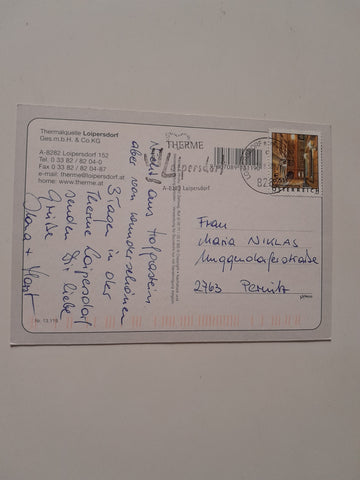 Thermalquelle Loipersdorf
Ges.m.b.H. & Co KG
A-8282 Loipersdorf 152
Tel. 0 33 82 / 82 04-0
Fax 0 33 82 / 82 04-87
e-mail: therme@loipersdorf.at
home: www.therme.at
Nicht aus Hofgastein,
aber von wunderschönen
3 Tagen in der
Therme Loipersdorf
senden Dir liebe
Grüße
Horst
Nr. 13.119
THERME
Loipersdorf
A-8282 Loipersdorf
ÖSTERREICH
Frau
Maria NIKLAS
Muggendorferstraße
2763 Pernitz